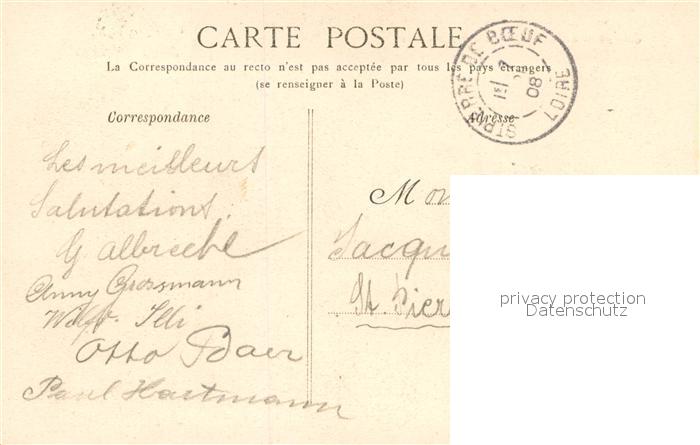 CARTE POSTALE
La Correspondance au recto n'est pas acceptée par tous les pays étrangers
(se renseigner à la Poste)
ST PIERRE DE BŒUF
LOIRE
08
Correspondance
Adresse
Les meilleurs
Salutations.
G. Albrecht
Anny Grossmann
Illi
Otto Baer
Paul Hartmann
Mon
Jacqu
St. Pier
privacy protection
Datenschutz